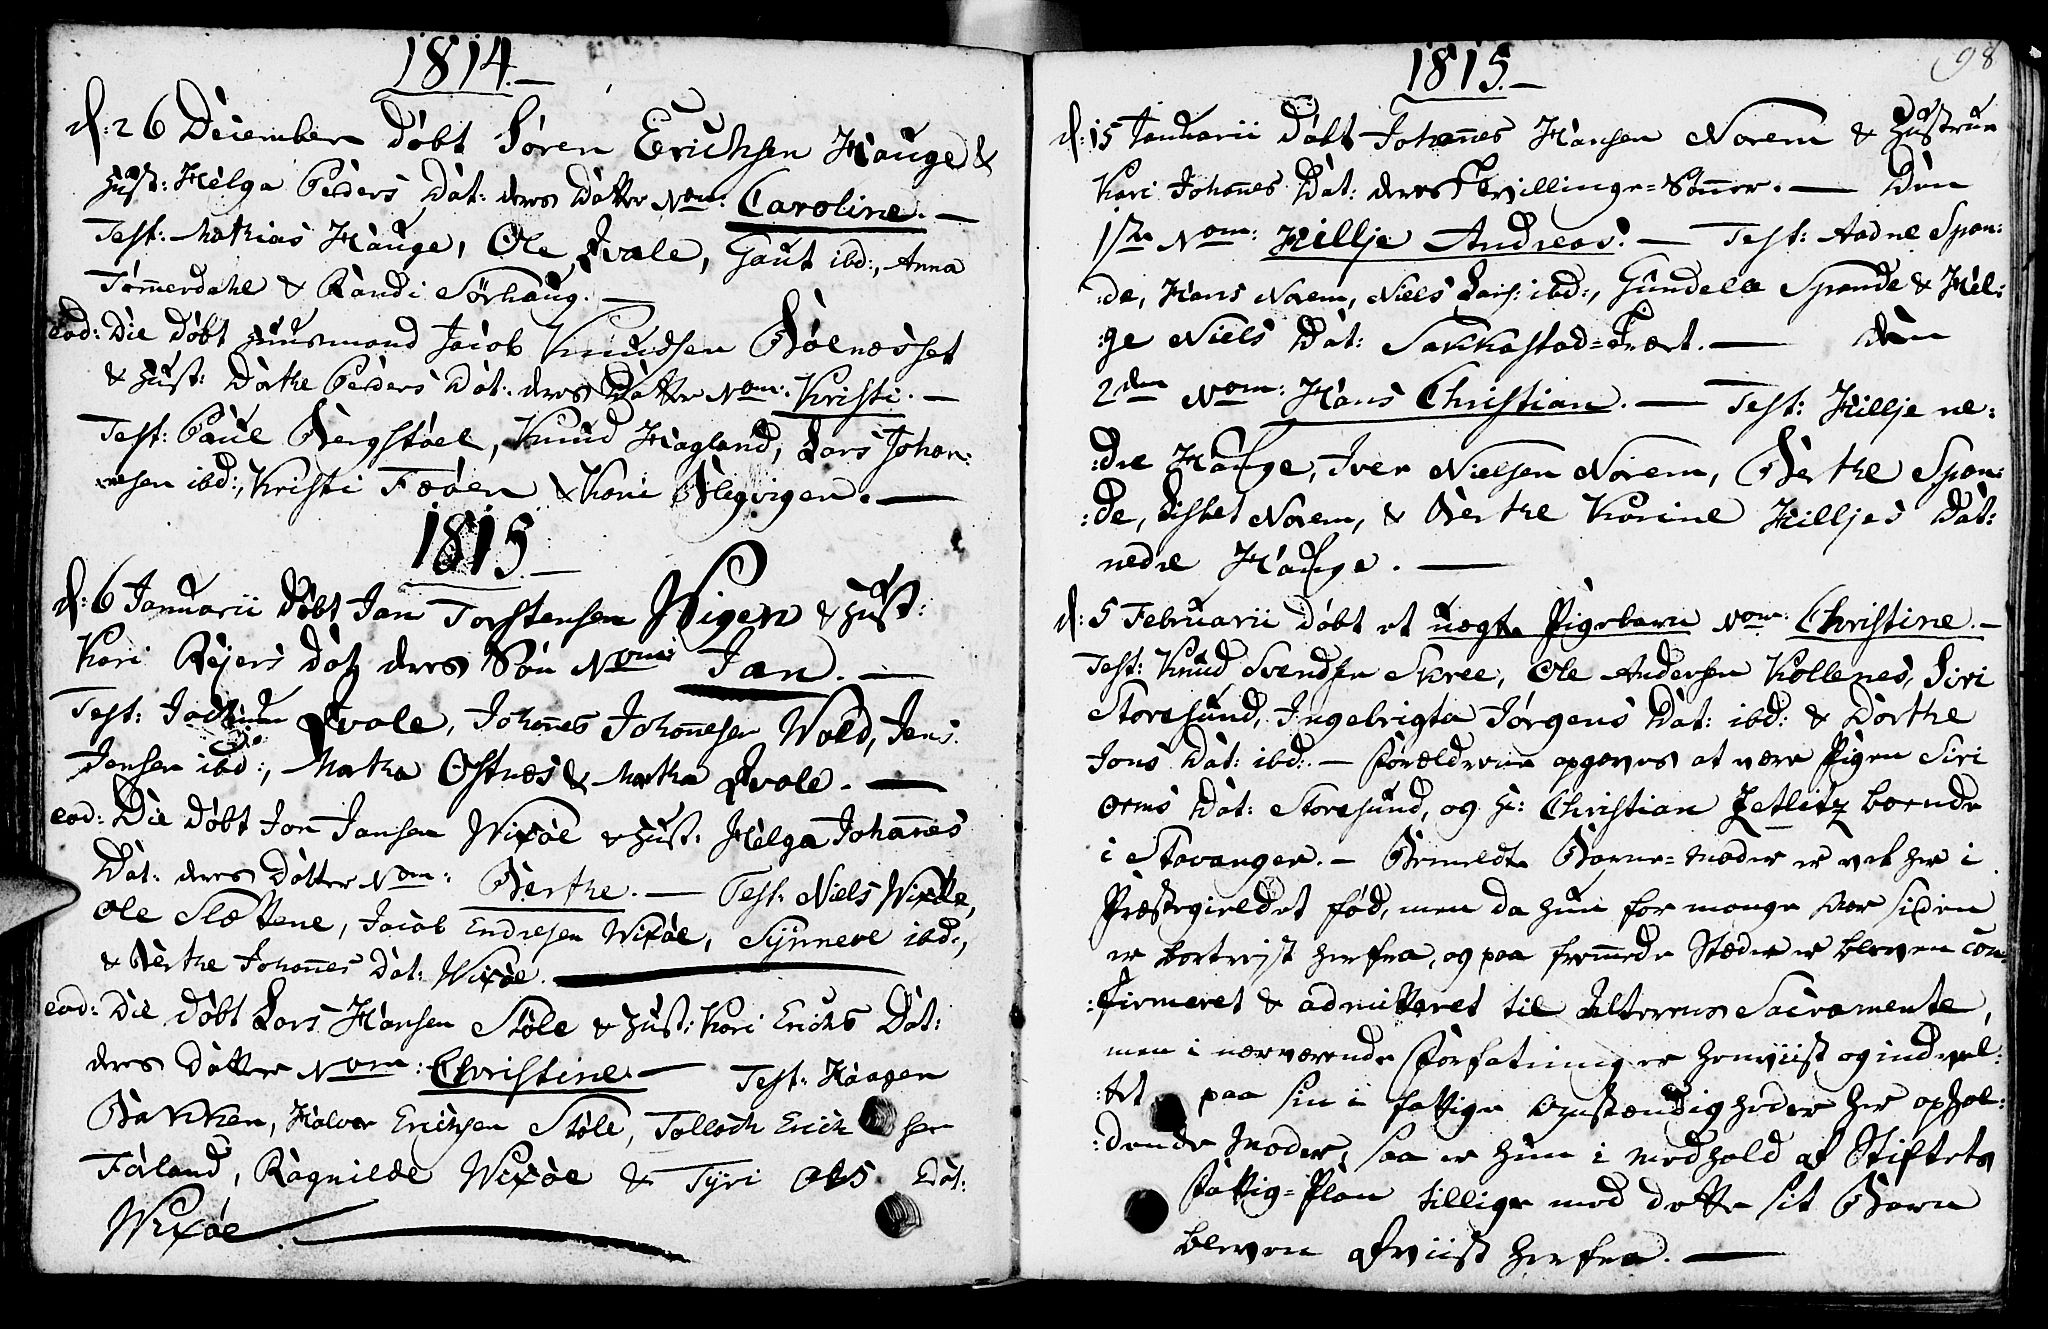 1814.—
d: 26 December Døbt Søren Erichsen Hauge &
Hust: Helga Peders Dat: deres Datter Nom: Caroline.—
Test: Mathias Hauge, Ole Qvale, Gaut ibd:, Anna
Tømmerdahl & Randi Sørhaug.—
eod: Die Døbt Huusmand Jacob Knudsen Bøenæsset
& Hust: Dorthe Peders Dat: deres Datter Nom: Kristi.—
Test: Paul Bergstøel, Knud Hagland, Lars Johan:
nesen ibd:, Kristi Føøen & Kari Blegvigen.—
1815.—
d: 6 Januarii Døbt Jan Torstensen Wigen & Hust:
Kari Rejers Dat: deres Søn Nom: Jan.—
Test: Jochum Qvale, Johannes Johannesen Wold, Jens
Jensen ibd:, Martha Ostnes & Martha Qvale.—
eod: Die Døbt Jon Jansen Wixøe & Hust: Helga Johannes
Dat: deres Datter Nom: Berthe.— Test: Niels Wixøe,
Ole Slættene, Jacob Endresen Wixøe, Synneve ibd:,
& Berthe Johannes Dat: Wixøe.—
eod: Die Døbt Lars Hansen Støle & Hust: Kari Erichs Dat:
deres Datter Nom: Christine.— Test: Haagen
Bakken, Halvor Erichsen Støle, Tolloch Erichsen
Førland, Ragnilde Wixøe & Tyri Ols Dat:
Wixøe.—
98
1815.—
d: 15 Januarii Døbt Johannes Hansen Norem & Hustrue
Kari Johannes Dat: deres Tvillinge=Sønner.— Den
1ste Nom: Hillje Andreas.— Test: Aadne Span:
:de, Hans Norem, Niels Lars: ibd:, Gundele Spande & Hel:
:ge Niels Dat: Sakkastad=Træet.— Den
2den Nom: Hans Christian.— Test: Hillje ne:
:dre Hauge, Iver Nielsen Norem, Berthe Span:
:de, Lisbet Norem, & Berthe Karine Hilljes Dat:
nedre Hauge.—
d: 5 Februarii Døbt et uægte Pigebarn Nom: Christine.—
Test: Knud Svendsen Skree, Ole Andersen Kollenes, Siri
Storesund, Ingebrigta Jørgens Dat: ibd: & Dorthe
Jons Dat: ibd:.— Forældrene opgaves at være Pigen Siri
Orms Dat: Storesund, og Hr: Christian Zetlitz boende
i Stavanger.— Bemeldte Barne=Moder er vel her i
Præstegieldet fød, men da hun for mange Aar siden
er bortrejst herfra, og paa fremmede Stæder er bleven con:
:firmeret & admitteret til Alterens Sacramente,
men i nærværende Forfatning er henviist og indval:
:tet paa sin i fattige Omstændigheder her ophol:
:dende Moder, saa er hun i Medhold af Stiftets
Fattig=Plan tillige med dette sit Barn
bleven afviist herfra.—